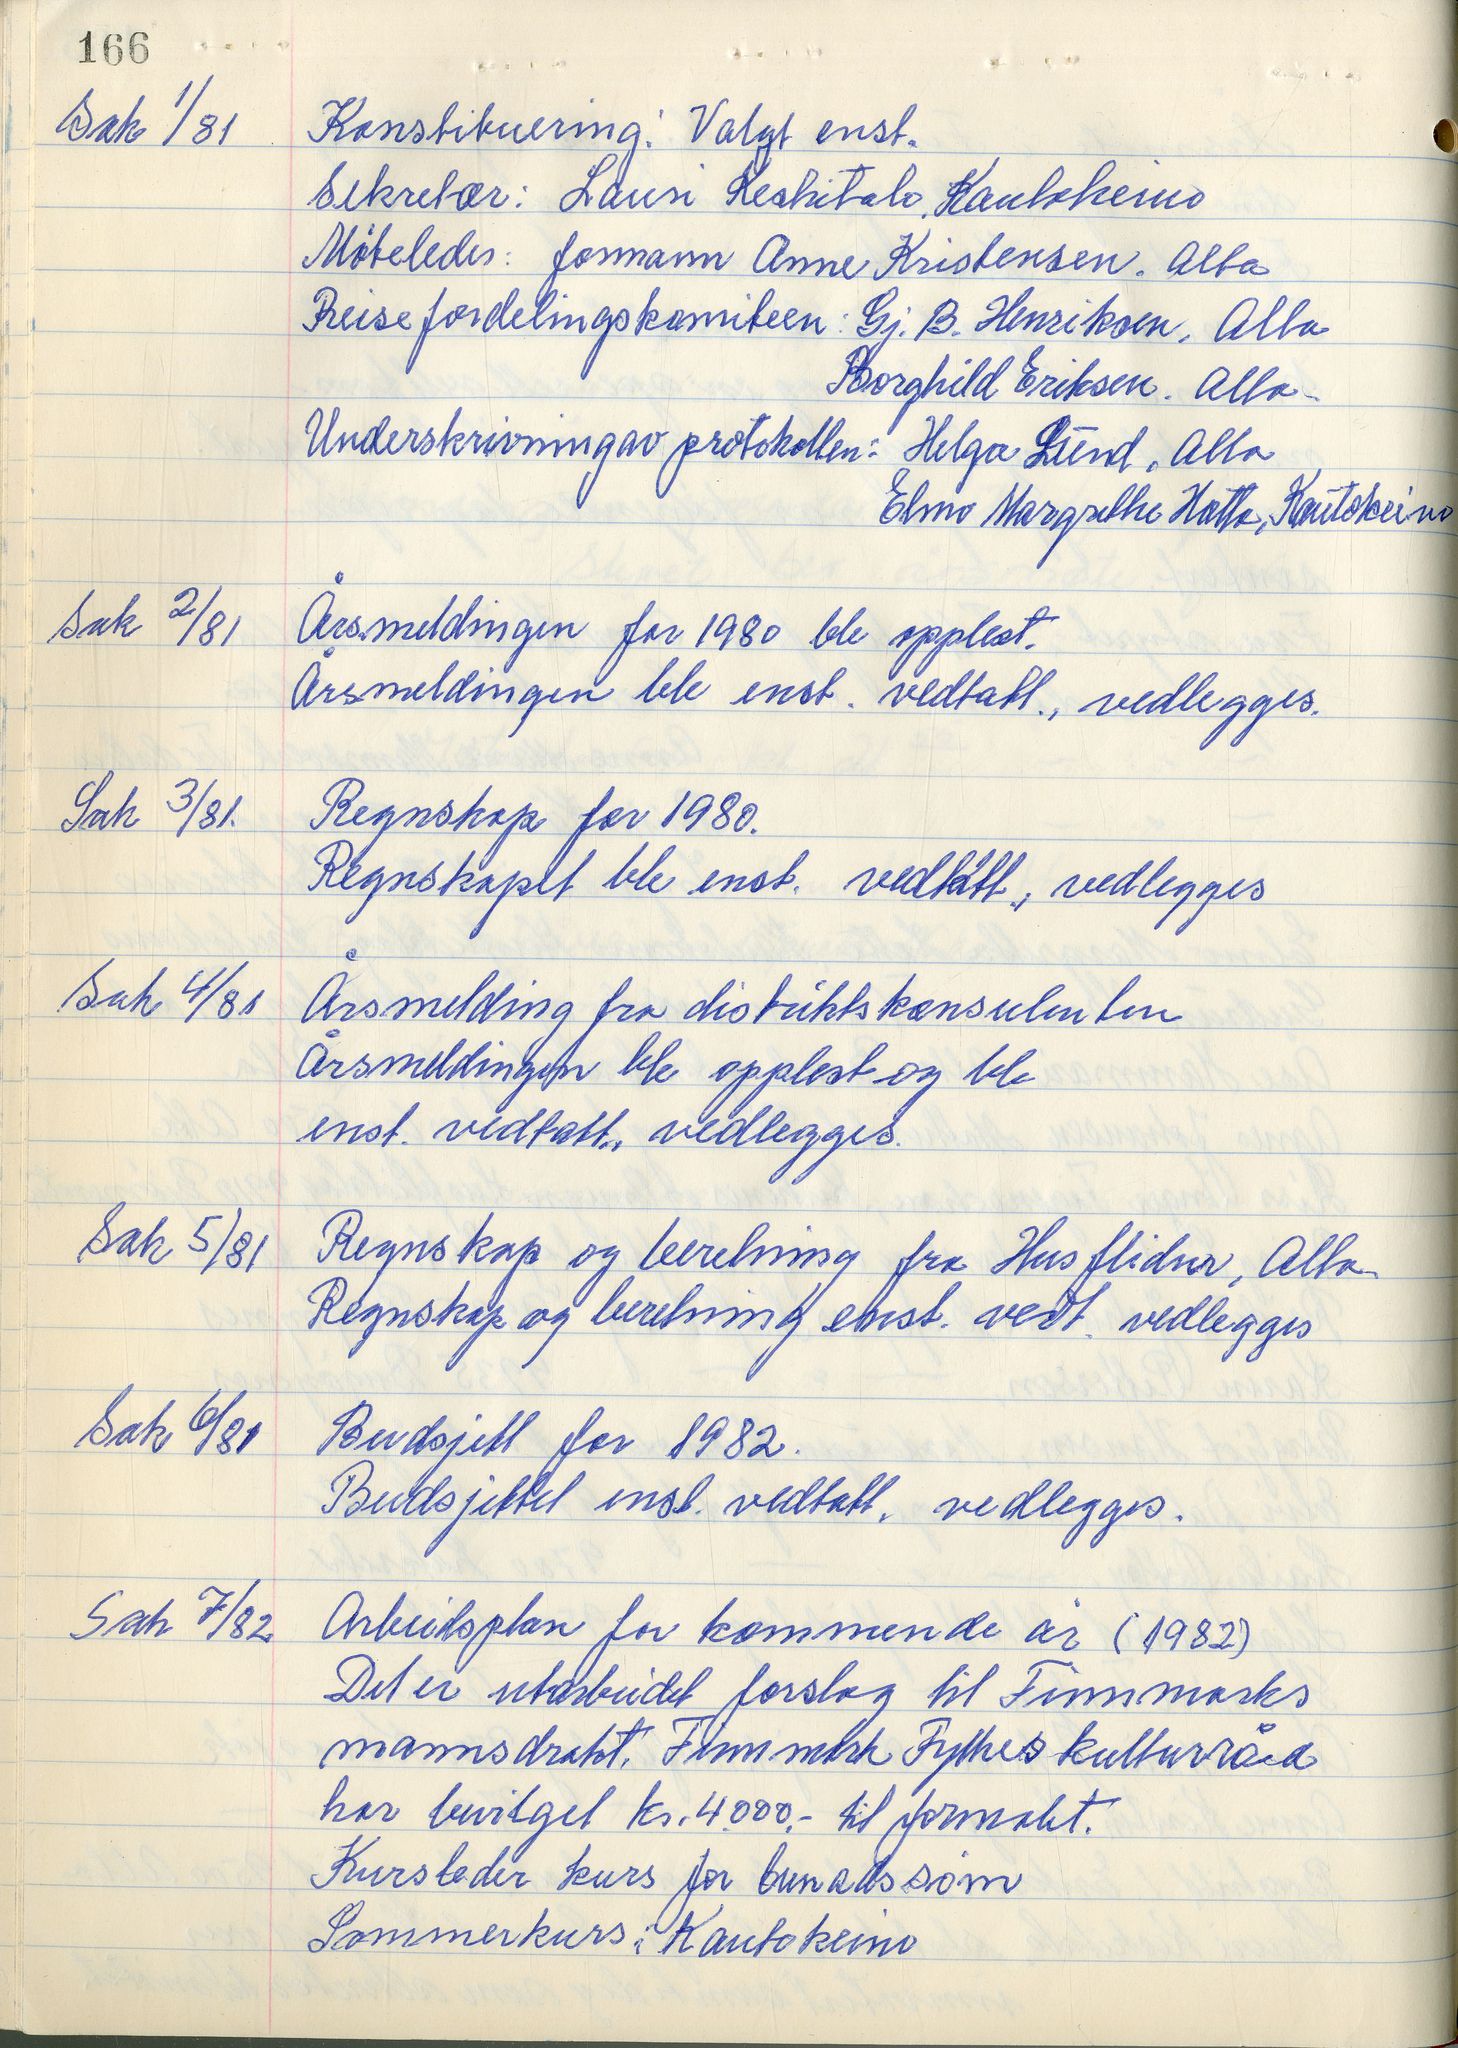 166
Sak 1/81 Konstituering: Valgt enst.
Sekretær: Lausi Keskitalo, Kautokeino
Møteleder: formann Anne Kristensen. Alta
Reisefordelingskomiteen: Gj. B. Henriksen, Alta
Borghild Eriksen. Alta.
Underskrivning av protokollen: Helga Lund, Alta
Elmo Margrethe Hætta, Kautokeino
Sak 2/81 Årsmeldingen for 1980 ble opplest.
Årsmeldingen ble enst. vedtatt., vedlegges.
Sak 3/81. Regnskap for 1980.
Regnskapet ble enst. vedtatt., vedlegges
Sak 4/81 Årsmelding fra distriktskonsulenten
Årsmeldingen ble opplest og ble
enst. vedtatt., vedlegges.
Sak 5/81 Regnskap og beretning fra Husfliden, Alta.
Regnskap og beretning enst. vedt. vedlegges
Sak 6/81 Budsjett for 1982.
Budsjettet enst. vedtatt, vedlegges.
Sak 7/82 Arbeidsplan for kommende år (1982)
Det er utarbeidet forslag til Finnmarks
mannsdrakt. Finnmark Fylkes kulturråd
har bevilget kr. 4.000.- til formålet.
Kursleder kurs for bunadssøm
Sommerkurs i Kautokeino